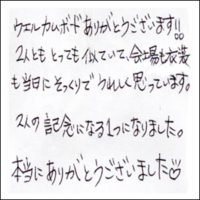 ウェルカムボードありがとうございます!!
2人ともとっても似ていて、会場も衣装
も当日にそっくりでうれしく思っています。
2人の記念になる1つになりました。
本当にありがとうございました♡